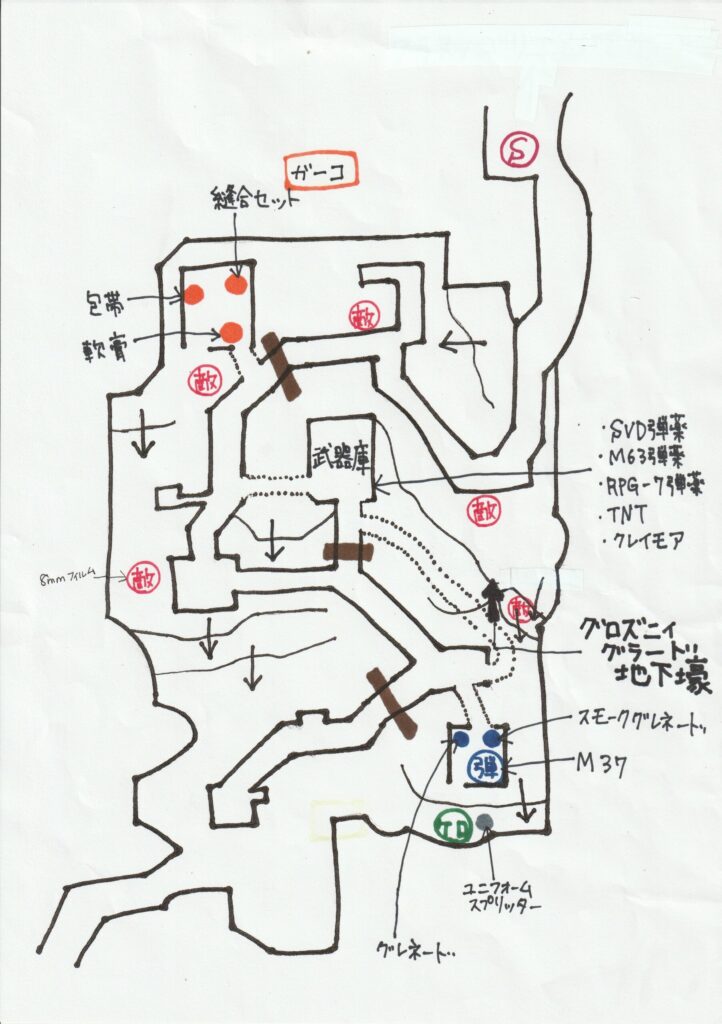 S
ガーコ
縫合セット
包帯
敵
軟膏
敵
武器庫
・SVD弾薬
・M63弾薬
・RPG-7弾薬
・TNT
・クレイモア
敵
8mmフィルム
敵
敵
グロズニィ
グラード
地下壕
スモークグレネード
弾
M37
ケロ
ユニフォーム
スプリッター
グレネード